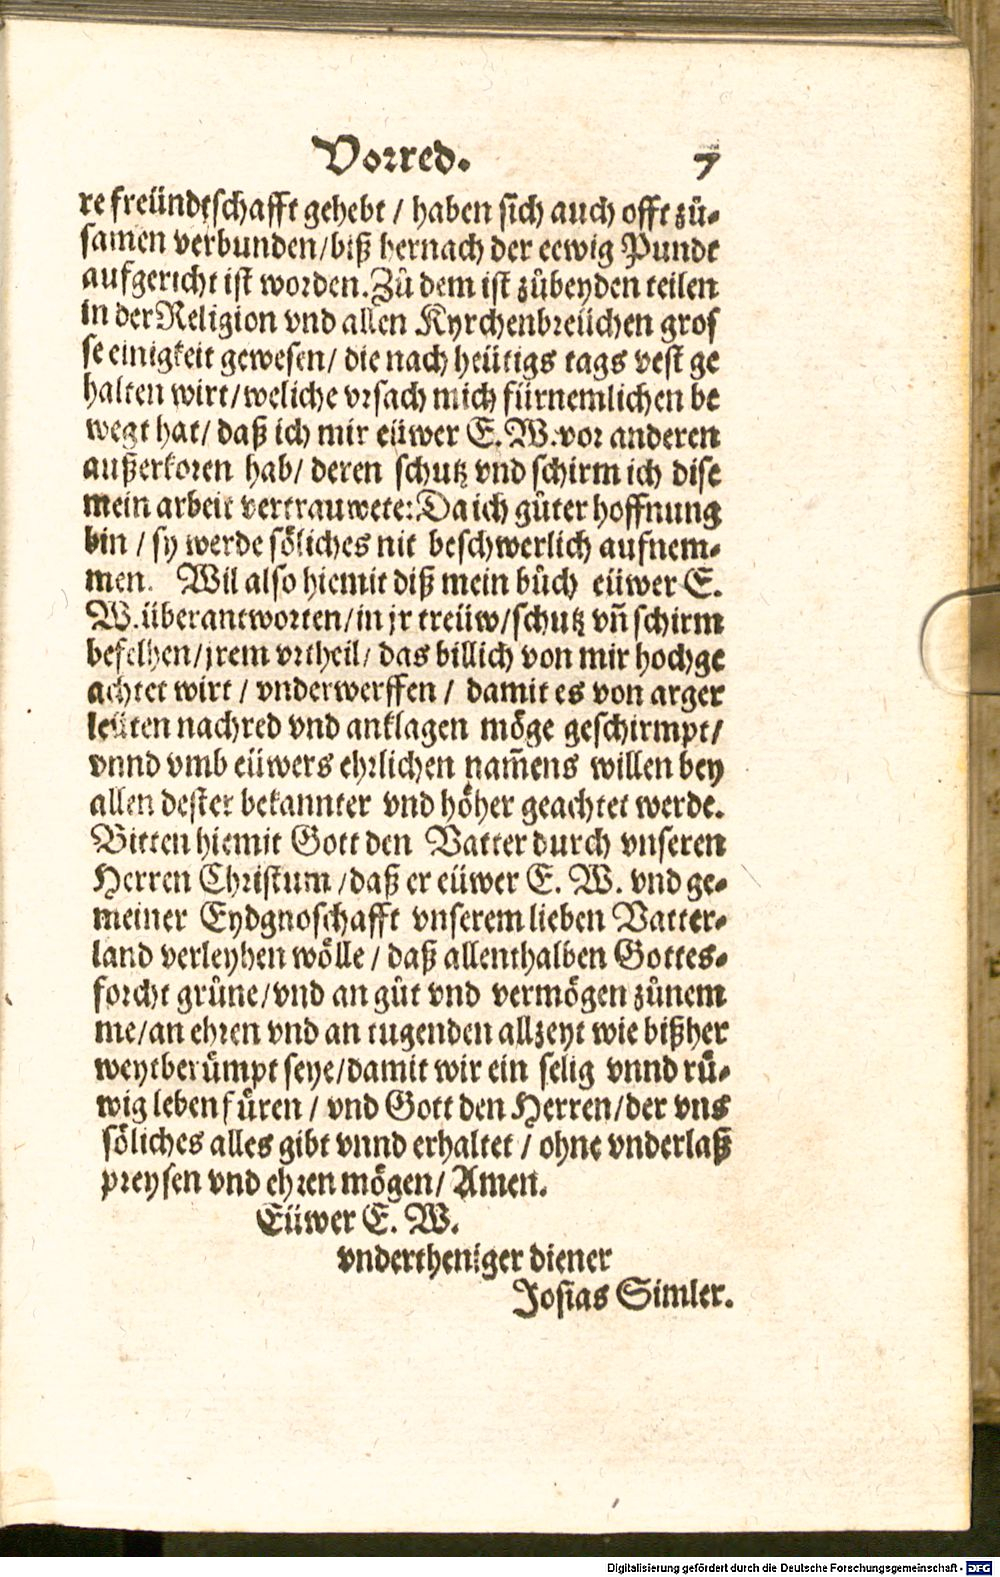 Vorred. 7
re freündtschafft gehebt / haben sich auch offt zů-
samen verbunden/biß hernach der eewig Pundt
aufgericht ist worden. Zů dem ist zůbeyden teilen
in der Religion vnd allen Kyrchenbreüchen gros
se einigkeit gewesen/ die nach heütigs tags vest ge
halten wirt/weliche vrsach mich fürnemlichen be
wegt hat/ daß ich mir eüwer E. W. vor anderen
außerkoren hab/ deren schutz vnd schirm ich dise
mein arbeit vertrauwete: Da ich gůter hoffnung
bin / sy werde söliches nit beschwerlich aufnem-
men. Wil also hiemit diß mein bůch eüwer E.
W. überantworten/in jr treüw/schutz vñ schirm
befelhen/jrem vrtheil/ das billich von mir hochge
achtet wirt / vnderwerffen / damit es von arger
leüten nachred vnd anklagen möge geschirmpt/
vnnd vmb eüwers ehrlichen nam̃ens willen bey
allen dester bekannter vnd höher geachtet werde.
Bitten hiemit Gott den Vatter durch vnseren
Herren Christum /daß er eüwer E. W. vnd ge-
meiner Eydgnoschafft vnserem lieben Vatter-
land verleyhen wölle / daß allenthalben Gottes-
forcht grůne/vnd an gůt vnd vermögen zůnem
me/an ehren vnd an tugenden allzeyt wie bißher
weytberümpt seye/damit wir ein selig vnnd rů-
wig leben fůren / vnd Gott den Herren/der vns
söliches alles gibt vnnd erhaltet / ohne vnderlaß
preysen vnd ehren mögen/ Amen.
Eüwer E. W.
vndertheniger diener
Josias Simler.
Digitalisierung gefördert durch die Deutsche Forschungsgemeinschaft - DFG